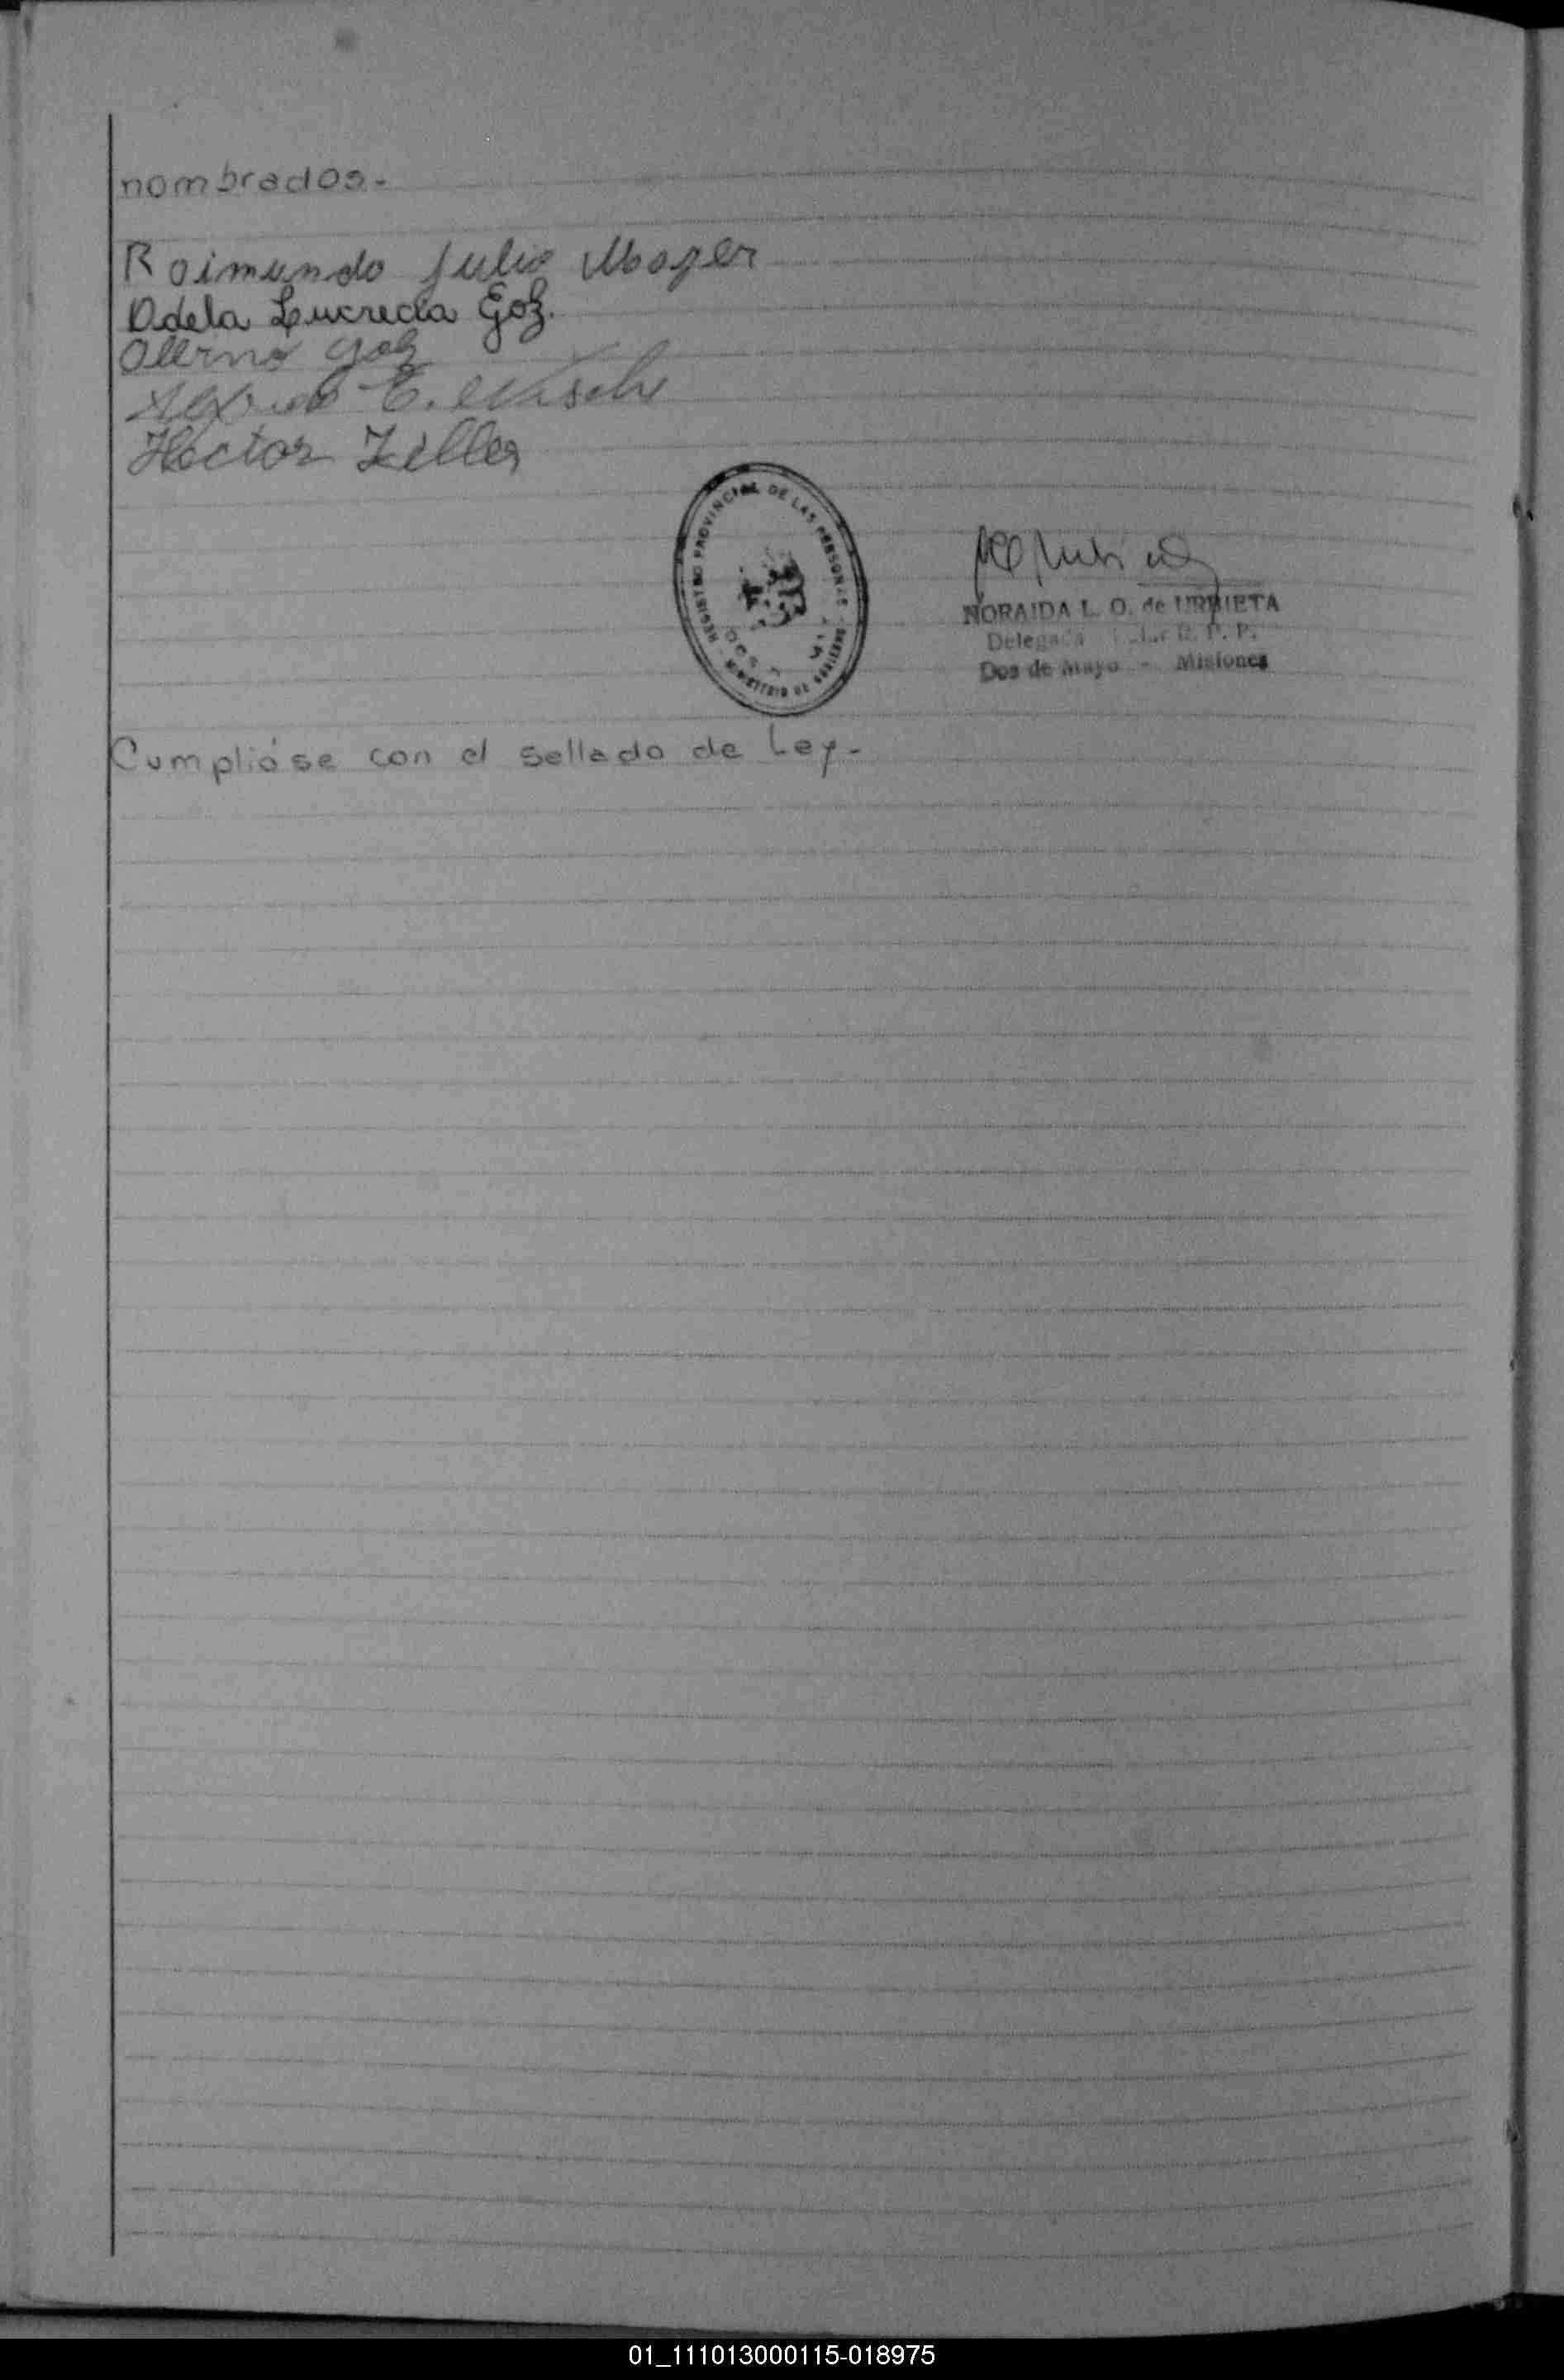 nombrados.-
Raimundo Julio Moger
Adela Lucrecia Goz.
Goz
E.
Hector Ziller
REGISTRO PROVINCIAL DE LAS PERSONAS - MINISTERIO DE GOBIERNO
DOS
NORAIDA L. O. de URBIETA
Delegada R. P. P.
Dos de Mayo - Misiones
Cumplióse con el sellado de Ley.-
01_111013000115-018975